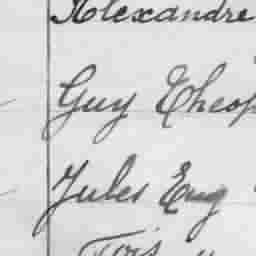 Alexandre
Guy Theop
Jules Eug